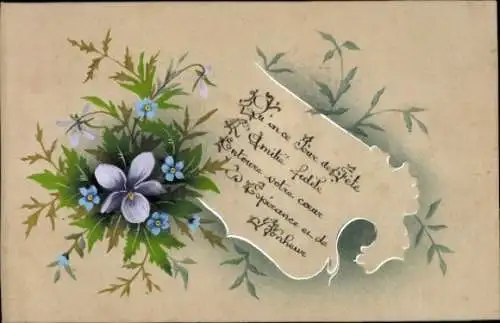 Qu'en ce Jour de Fête
L'Amitié fidèle
Entoure votre cœur
D'Espérance et de
Bonheur